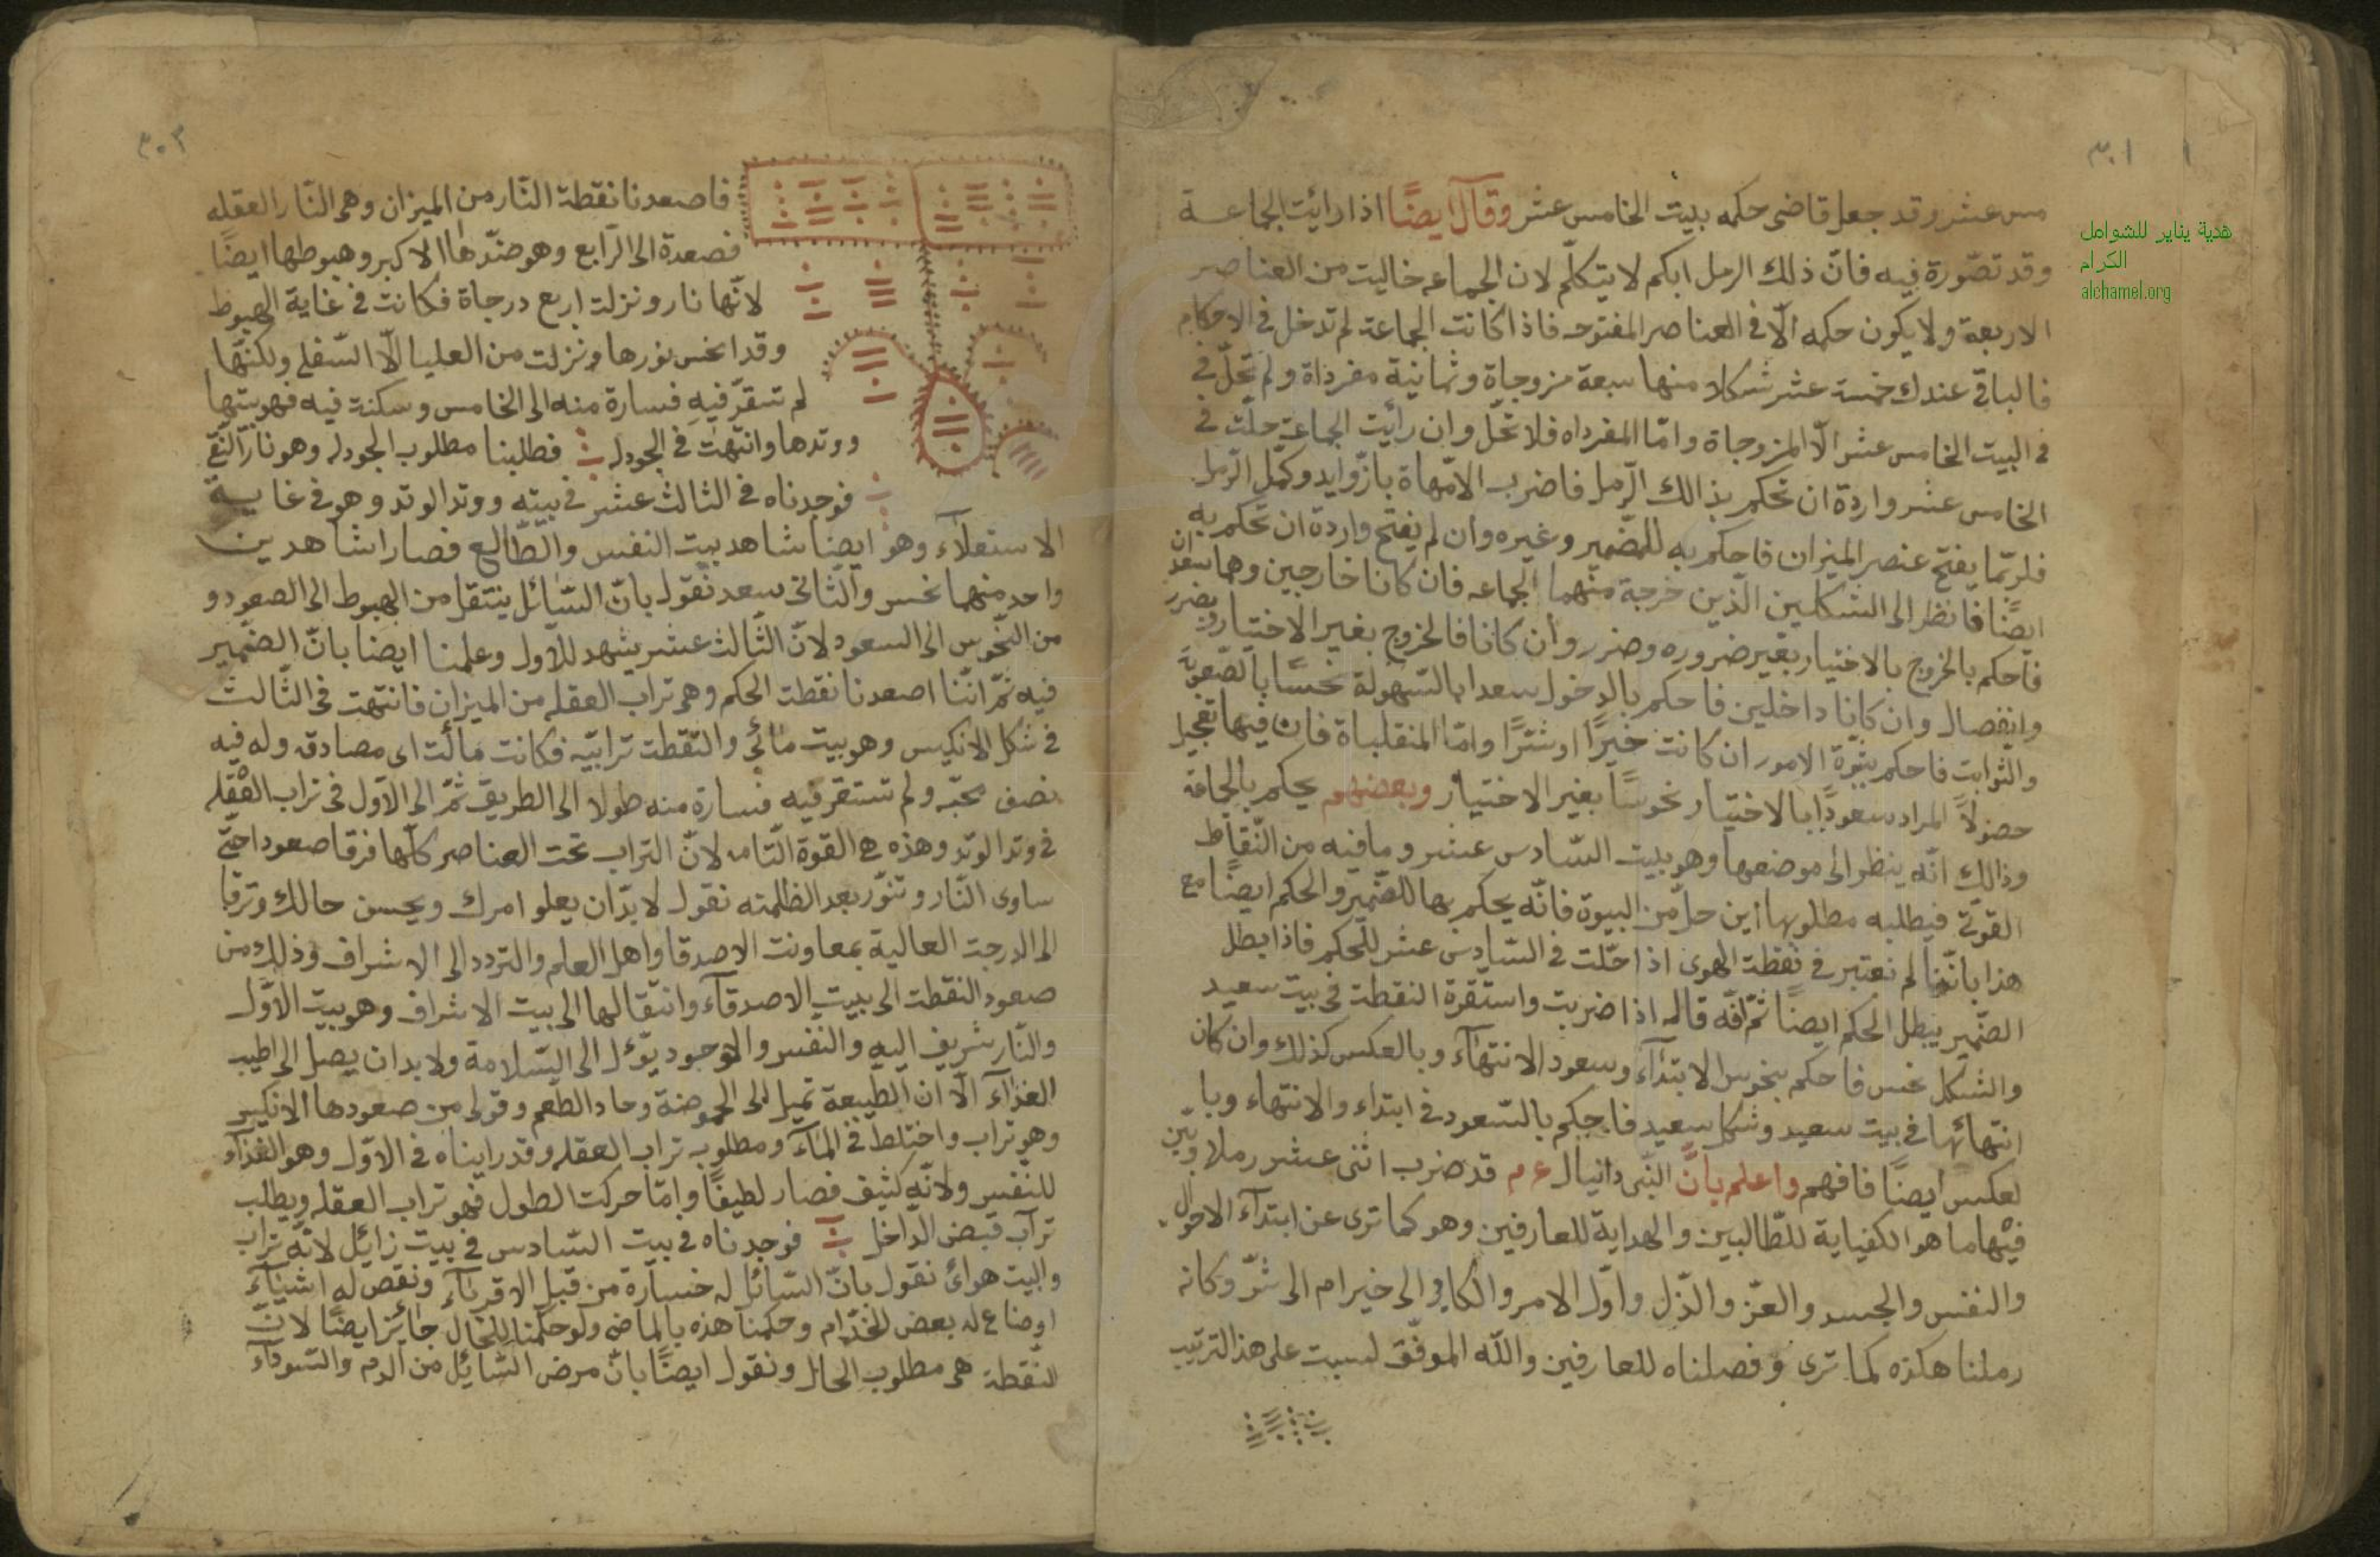 ٣٠١
مس عشر وقد جعل قاضى حكمه بليت الخامس عشر وقال ايضًا اذا رائيت الجماعة
وقد تصّورة فيه فانّ ذلك الرمل ابكم لا يتكلّم لان الجماعه خاليت من العناصر
الاربعة ولا يكون حكمه الّا فى العناصر المفتوحه فاذا كانت الجماعة لم تدخل فى الاحكام
فالباقى عندك خمسة عشر شكلا منها سبعة مزوجاة وثمانية مفرداة ولم تحلّ فى
فى البيت الخامس عشر الّا المزوجاة وامّا المفرداه فلا تحّل وان رأيت الجماعة حلّت فى
الخامس عشر واردة ان تحكم بذالك الرّمل فاضرب الامّهاة بازّوايد وكمّل الرّمل
فلربّما يفتح عنصر الميزان فاحكم به للمضمير وغيره وان لم يفتح واردة ان تحكم به
ايضًا فانظر الى الشكلين الّذين خرجة منهما الجماعه فان كانا خارجين وهما سعدان
فاحكم بالخروج بالاختيار بغير ضروره وضرر وان كانا فالخروج بغير الاختيار وبضرر
وانفصال وان كاينا داخلين فاحكم بالدخول سعدا بالسّهولة نحسًا بالصّعوبة
والثوابت فاحكم بثبوة الامور ان كانت خيرًا او شرًّا وامّا المنقلباة فان فيها تعجيل
حصولًا المراد سعودًا بالاختيار نحوسًا بغير الاختيار وبعضهم يحكم بالجماعة
وذالك انّه ينظر الى موضعها وهو بليت السّادس عشر وما فيه من النّقاط
القوتى فيطلبه مطلوبها اين حلّ من البيوة فانّه يحكم بها للضّمير والحكم ايضًا مع
هذا بانّنا لم نعتبر فى نقطة الهوى اذا حلّت فى السّادس عشر للحكم فاذا بطل
الضّمير يبطل الحكم ايضًا ثمّ انّه قال اذا ضربت واستقرة النقطة فى بيت سعيد
والشكل نحس فاحكم بنحوس الابتدآء وسعود الانتهآء وبالعكس كذلك وان كان
انتهائها فى بيت سعيد وشكل سعيد فاحكم بالسّعود فى ابتداء والانتهاء وبا
لعكس ايضًا فافهم واعلم بانّ النّبى دانيال ع م قد ضرب اثنى عشر رملا وبيّن
فيها ما هو الكفياية للطّالبين والهداية للعارفين وهو كما ترى عن ابتدآء الاحوال
والنفس والجسد والعزّ والذّل واوّل الامر والكافى الى خير ام الى شرّ وكانه
رملنا هكذه كما ترى وفصلناه للعارفين والله الموفّق لسبت على هذا الترتيب
٣٠٢
فاصعدنا نقطة النّار من الميزان وهى النّار العقله
فصعدة الى الرّابع وهو ضدّها الاكبر وهبوطها ايضًا
لانّها نار ونزلت اربع درجاة فكانت فى غاية الهبوط
وقد انحس نورها ونزلت من العليا الّا السّفلى ولكنّها
لم تسقرّ فيه فسارة منه الى الخامس وسكنة فيه فهو بيتها
ووتدها وانتهت فى الجودله فطلبنا مطلوب الجودله وهو نار النّقى
فوجدناه فى الثالث عشر فى بيته ووتد الوتد وهو فى غاية
الاستعلآء وهو ايضا شاهد بيت النفس والطّالع فصارا شاهدين
واحد منهما نحس والثّانى سعد نقول بانّ السّائل ينتقل من الهبوط الى الصعود و
من النّحوس الى السعود لانّ الثّالث عشر يشهد للاول وعلمنا ايضا بانّ الضّمير
فيه ثمّ انّنا اصعدنا نقطت الحكم وهى تراب العقله من الميزان فانتهت فى الثّالث
فى شكل الانكيس وهو بيت مائى والنّقطت ترابيّه فكانت مالت اى مصادقه وله فيه
نصف محبّه ولم تستقر فيه فسارة منه طولا الى الطريق ثمّ الى الاوّل فى تراب العقله
فى وتد الوتد وهذه هى القوة التّامه لانّ التراب تحت العناصر كلّها فرقا صعودا حتّى
ساوى النّار وتنوّر بعد الظلمته نقول لا بدّ ان يعلو امرك ويحسن حالك وترقا
الى الدرجة العالية بمعاونت الاصدقا واهل العلم والتردد الى الاشراف وذلك من
صعود النقطت الى بليت الاصدقآء وانتقالها الى بيت الاشراف وهو بيت الاوّل
والنّار شريف اليه والنّفس والوجود يؤل الى السّلامة ولا بد ان يصل الى اطيب
الغذآء الّا ان الطّبيعة تميل الى الحموضة وحاد الطّعم وقولى من صعودها الانكيس
وهو تراب واختلط فى المآء ومطلوب تراب العقله وقد رايناه فى الاوّل وهو الغذآء
للنّفس ولانّه كثيف فصار لطيفًا وامّا حركت الطول فهو تراب العقله ويطلب
تراب قبض الدّاخل فوجدناه فى بيت السّادس فى بيت زائل لانّه تراب
والبيت هوائ نقول بانّ السّائل له خسارة من قبل الاقربآء ونقص له اشيآء
اوضاع له بعض الخدّام وحكمنا هذه بالماضى ولو حكمنا للحال جائز ايضًا لانّ
النّقطة هى مطلوب الحال ونقول ايضًا بانّ مرض السّائل من الدم والسّودآء
هدية يناير للشوامل
الكرام
alchamel.org